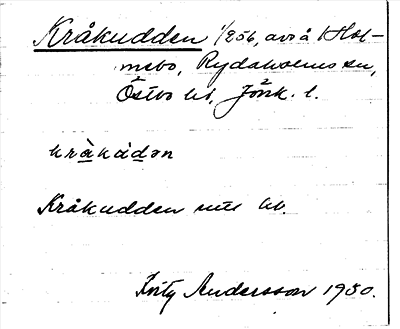 Kråkudden 1/256, avs å 1 Hol-
mebo, Rydaholms sn,
Östbo hd, Jönk. l.
kråkùdən
Kråkudden hd.
Andersson 1930.